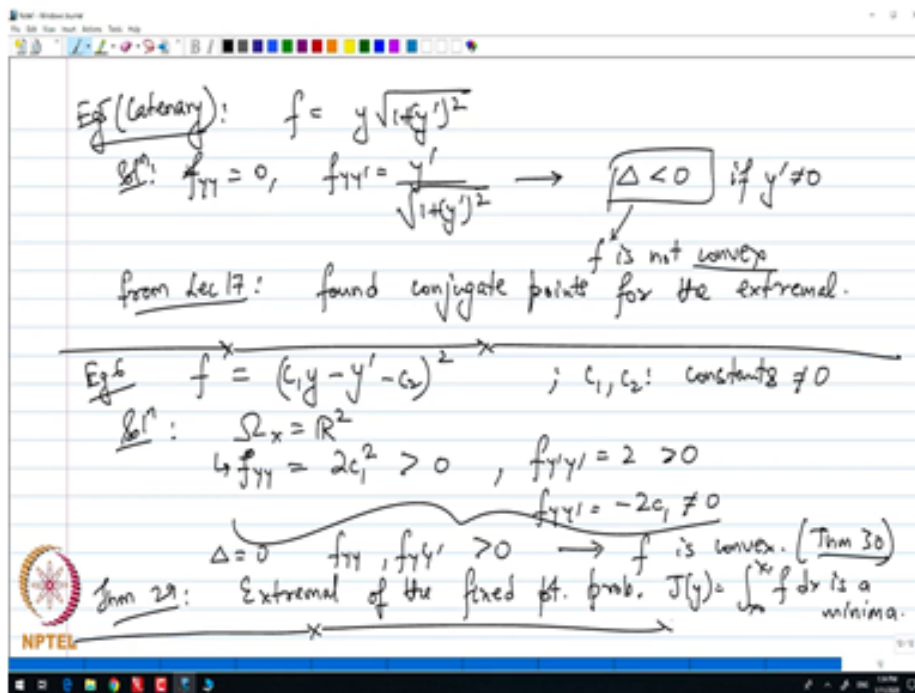 Eg5 (Catenary): f = y√(1+(y')²)
Solⁿ: f_yy = 0, f_yy' = y'/√(1+(y')²) → Δ < 0 if y' ≠ 0
f is not convex
from Lec 17: found conjugate points for the extremal.
Eg 6 f = (c₁y - y' - c₂)² ; c₁, c₂: constants ≠ 0
Solⁿ: Ω_x = ℝ²
↳ f_yy = 2c₁² > 0 , f_y'y' = 2 > 0
f_yy' = -2c₁ ≠ 0
Δ = 0 f_yy , f_y'y' > 0 → f is convex. (Thm 30)
Thm 29: Extremal of the fixed pt. prob. J(y) = ∫_x₀^x₁ f dx is a
minima.
NPTEL